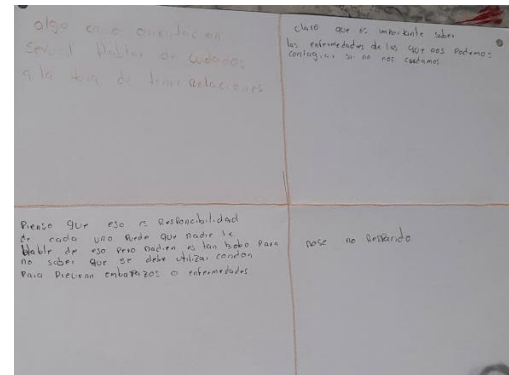 algo como orientacion
Sexual Hablar de cuidados
a la hora de tener relaciones
claro que es importante saber
las enfermedades de las que nos Podemos
contagiar si no nos cuidamos
Pienso que eso es Responcibilidad
de cada uno Puede que nadie le
Hable de eso Pero nadien es tan bobo Para
no saber que se debe utilizar condon
Para Prevenir embarazos o enfermedades
nose no Respondo